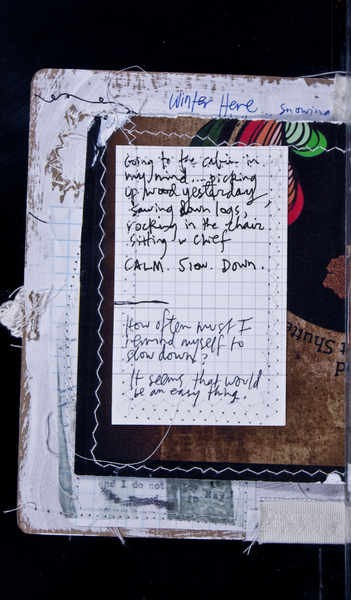 Winter Here... snowing
Going to the cabin in
my mind... picking
up wood yesterday,
sawing down logs,
rocking in the chair
sitting w chief
CALM. Slow. Down.
How often must I
remind myself to
slow down?
It seems that would
be an easy thing.
t Shutte
and I do not